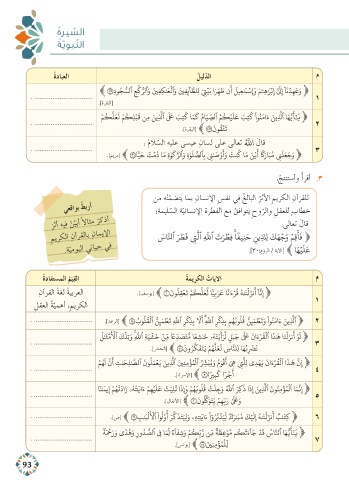 السّيرة
النّبويّة
م
الدّليلُ
العبادةُ
﴿ وَعَهِدْنَا إِلَىٰ إِبْرَاهِيمَ وَإِسْمَاعِيلَ أَن طَهِّرَا بَيْتِيَ لِلطَّائِفِينَ وَالْعَاكِفِينَ وَالرُّكَّعِ السُّجُودِ ﴾
[البقرة].
١
﴿ يَا أَيُّهَا الَّذِينَ آمَنُوا كُتِبَ عَلَيْكُمُ الصِّيَامُ كَمَا كُتِبَ عَلَى الَّذِينَ مِن قَبْلِكُمْ لَعَلَّكُمْ
تَتَّقُونَ ﴾ [البقرة].
٢
قالَ اللهُ تعالى على لسان عيسى عليه السّلامُ :
﴿ وَجَعَلَنِي مُبَارَكًا أَيْنَ مَا كُنتُ وَأَوْصَانِي بِالصَّلَاةِ وَالزَّكَاةِ مَا دُمْتُ حَيًّا ﴾ [مريم].
٣
٣. أقرأُ وأستنتجُ:
للقرآن الكريم الأثرُ البالغُ في نفس الإنسان بما يتضمّنُه من
خطابٍ للعقل والرّوح يتوافقُ مع الفطرة الإنسانيّة السّليمة؛
قالَ تعالى:
﴿ فَأَقِمْ وَجْهَكَ لِلدِّينِ حَنِيفًا فِطْرَتَ اللَّهِ الَّتِي فَطَرَ النَّاسَ
عَلَيْهَا ﴾ [الروم: ٣٠].
أربطُ بواقعي
أذكرُ مثالًا أبيّنُ فيه أثرَ
الإيمان بالقرآن الكريم
في حياتي اليوميّة.
م
الآياتُ الكريمةُ
القيمُ المستفادةُ
﴿ إِنَّا أَنزَلْنَاهُ قُرْآنًا عَرَبِيًّا لَّعَلَّكُمْ تَعْقِلُونَ ﴾ [يوسف].
العربيةُ لغةُ القرآن
الكريم، أهميّةُ العقل
١
﴿ الَّذِينَ آمَنُوا وَتَطْمَئِنُّ قُلُوبُهُم بِذِكْرِ اللَّهِ أَلَا بِذِكْرِ اللَّهِ تَطْمَئِنُّ الْقُلُوبُ ﴾ [الرعد].
٢
﴿ لَوْ أَنزَلْنَا هَٰذَا الْقُرْآنَ عَلَىٰ جَبَلٍ لَّرَأَيْتَهُ خَاشِعًا مُّتَصَدِّعًا مِّنْ خَشْيَةِ اللَّهِ وَتِلْكَ الْأَمْثَالُ
نَضْرِبُهَا لِلنَّاسِ لَعَلَّهُمْ يَتَفَكَّرُونَ ﴾ [الحشر].
٣
﴿ إِنَّ هَٰذَا الْقُرْآنَ يَهْدِي لِلَّتِي هِيَ أَقْوَمُ وَيُبَشِّرُ الْمُؤْمِنِينَ الَّذِينَ يَعْمَلُونَ الصَّالِحَاتِ أَنَّ لَهُمْ
أَجْرًا كَبِيرًا ﴾ [الإسراء].
٤
﴿ إِنَّمَا الْمُؤْمِنُونَ الَّذِينَ إِذَا ذُكِرَ اللَّهُ وَجِلَتْ قُلُوبُهُمْ وَإِذَا تُلِيَتْ عَلَيْهِمْ آيَاتُهُ زَادَتْهُمْ إِيمَانًا
وَعَلَىٰ رَبِّهِمْ يَتَوَكَّلُونَ ﴾ [الأنفال].
٥
﴿ كِتَابٌ أَنزَلْنَاهُ إِلَيْكَ مُبَارَكٌ لِّيَدَّبَّرُوا آيَاتِهِ وَلِيَتَذَكَّرَ أُولُو الْأَلْبَابِ ﴾ [ص].
٦
﴿ يَا أَيُّهَا النَّاسُ قَدْ جَاءَتْكُم مَّوْعِظَةٌ مِّن رَّبِّكُمْ وَشِفَاءٌ لِّمَا فِي الصُّدُورِ وَهُدًى وَرَحْمَةٌ
لِّلْمُؤْمِنِينَ ﴾ [يونس].
٧
93